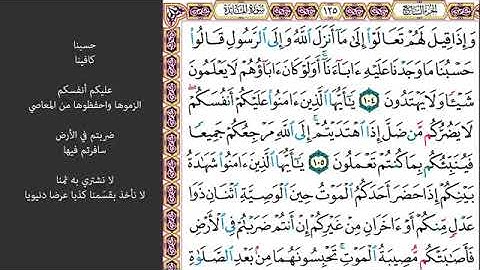 حسبنا
كافينا
عليكم أنفسكم
الزموها واحفظوها من المعاصي
ضربتم في الأرض
سافرتم فيها
لا نشتري به ثمنًا
لا نأخذ بقسَمنا كذبا عرضا دنيويا
الجزء السابع
١٢٥
سورة المائدة
وَإِذَا قِيلَ لَهُمْ تَعَالَوْا۟ إِلَىٰ مَآ أَنزَلَ ٱللَّهُ وَإِلَى ٱلرَّسُولِ قَالُوا۟
حَسْبُنَا مَا وَجَدْنَا عَلَيْهِ ءَابَآءَنَآ ۚ أَوَلَوْ كَانَ ءَابَآؤُهُمْ لَا يَعْلَمُونَ
شَيْـًٔا وَلَا يَهْتَدُونَ ١٠٤ يَـٰٓأَيُّهَا ٱلَّذِينَ ءَامَنُوا۟ عَلَيْكُمْ أَنفُسَكُمْ ۖ
لَا يَضُرُّكُم مَّن ضَلَّ إِذَا ٱهْتَدَيْتُمْ ۚ إِلَى ٱللَّهِ مَرْجِعُكُمْ جَمِيعًا
فَيُنَبِّئُكُم بِمَا كُنتُمْ تَعْمَلُونَ ١٠٥ يَـٰٓأَيُّهَا ٱلَّذِينَ ءَامَنُوا۟ شَهَـٰدَةُ
بَيْنِكُمْ إِذَا حَضَرَ أَحَدَكُمُ ٱلْمَوْتُ حِينَ ٱلْوَصِيَّةِ ٱثْنَانِ ذَوَا
عَدْلٍ مِّنكُمْ أَوْ ءَاخَرَانِ مِنْ غَيْرِكُمْ إِنْ أَنتُمْ ضَرَبْتُمْ فِى ٱلْأَرْضِ
فَأَصَـٰبَتْكُم مُّصِيبَةُ ٱلْمَوْتِ ۚ تَحْبِسُونَهُمَا مِنۢ بَعْدِ ٱلصَّلَوٰةِ